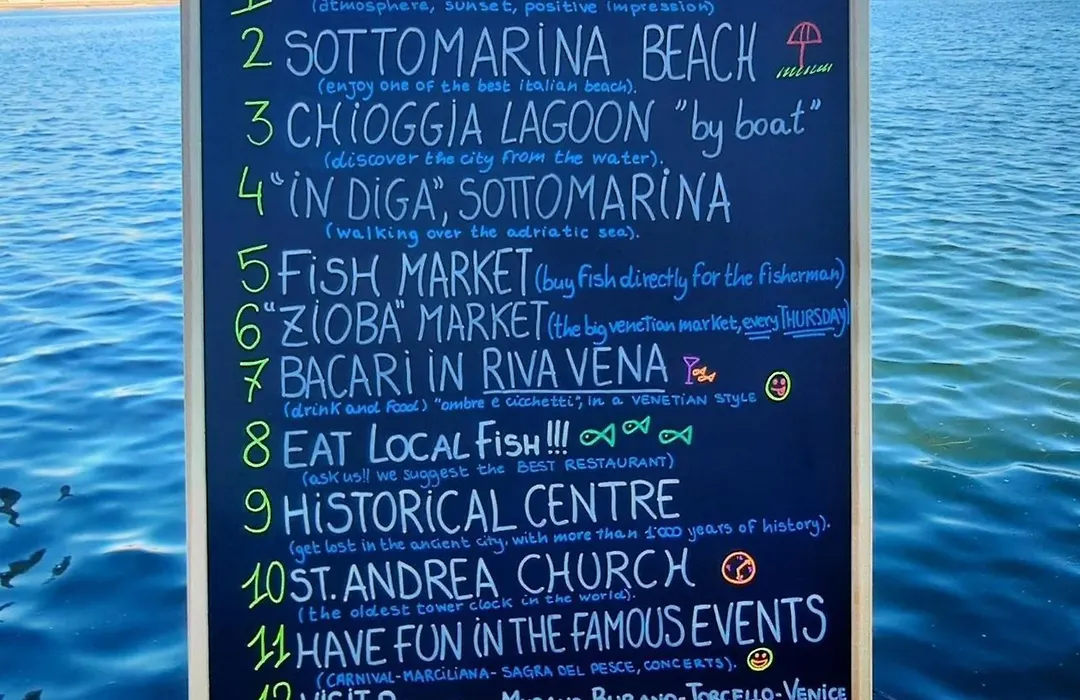 (atmosphere, sunset, positive impression)
2 SOTTOMARINA BEACH
(enjoy one of the best italian beach).
3 CHIOGGIA LAGOON "by boat"
(discover the city from the water).
4 "IN DIGA", SOTTOMARINA
(walking over the adriatic sea).
5 FISH MARKET (buy fish directly for the fisherman)
6 "ZIOBA" MARKET (the big venetian market, every THURSDAY)
7 BACARI IN RIVA VENA
(drink and food) "ombre e cicchetti", in a VENETIAN STYLE
8 EAT LOCAL FISH!!!
(ask us!! we suggest the BEST RESTAURANT)
9 HISTORICAL CENTRE
(get lost in the ancient city, with more than 1'000 years of history).
10 ST. ANDREA CHURCH
(the oldest tower clock in the world).
11 HAVE FUN IN THE FAMOUS EVENTS
(CARNIVAL - MARCILIANA - SAGRA DEL PESCE, CONCERTS).
12 MURANO-BURANO-TORCELLO-VENICE